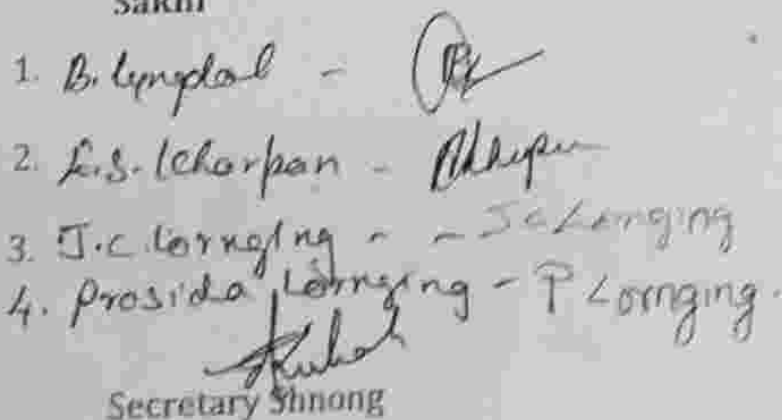 Sakhi
1. B. Lyngdoh -
2. E.S. Kharpan -
3. J.C. Lornging - - J C Lornging
4. Prosida Lornging - P Lornging.
Secretary Shnong